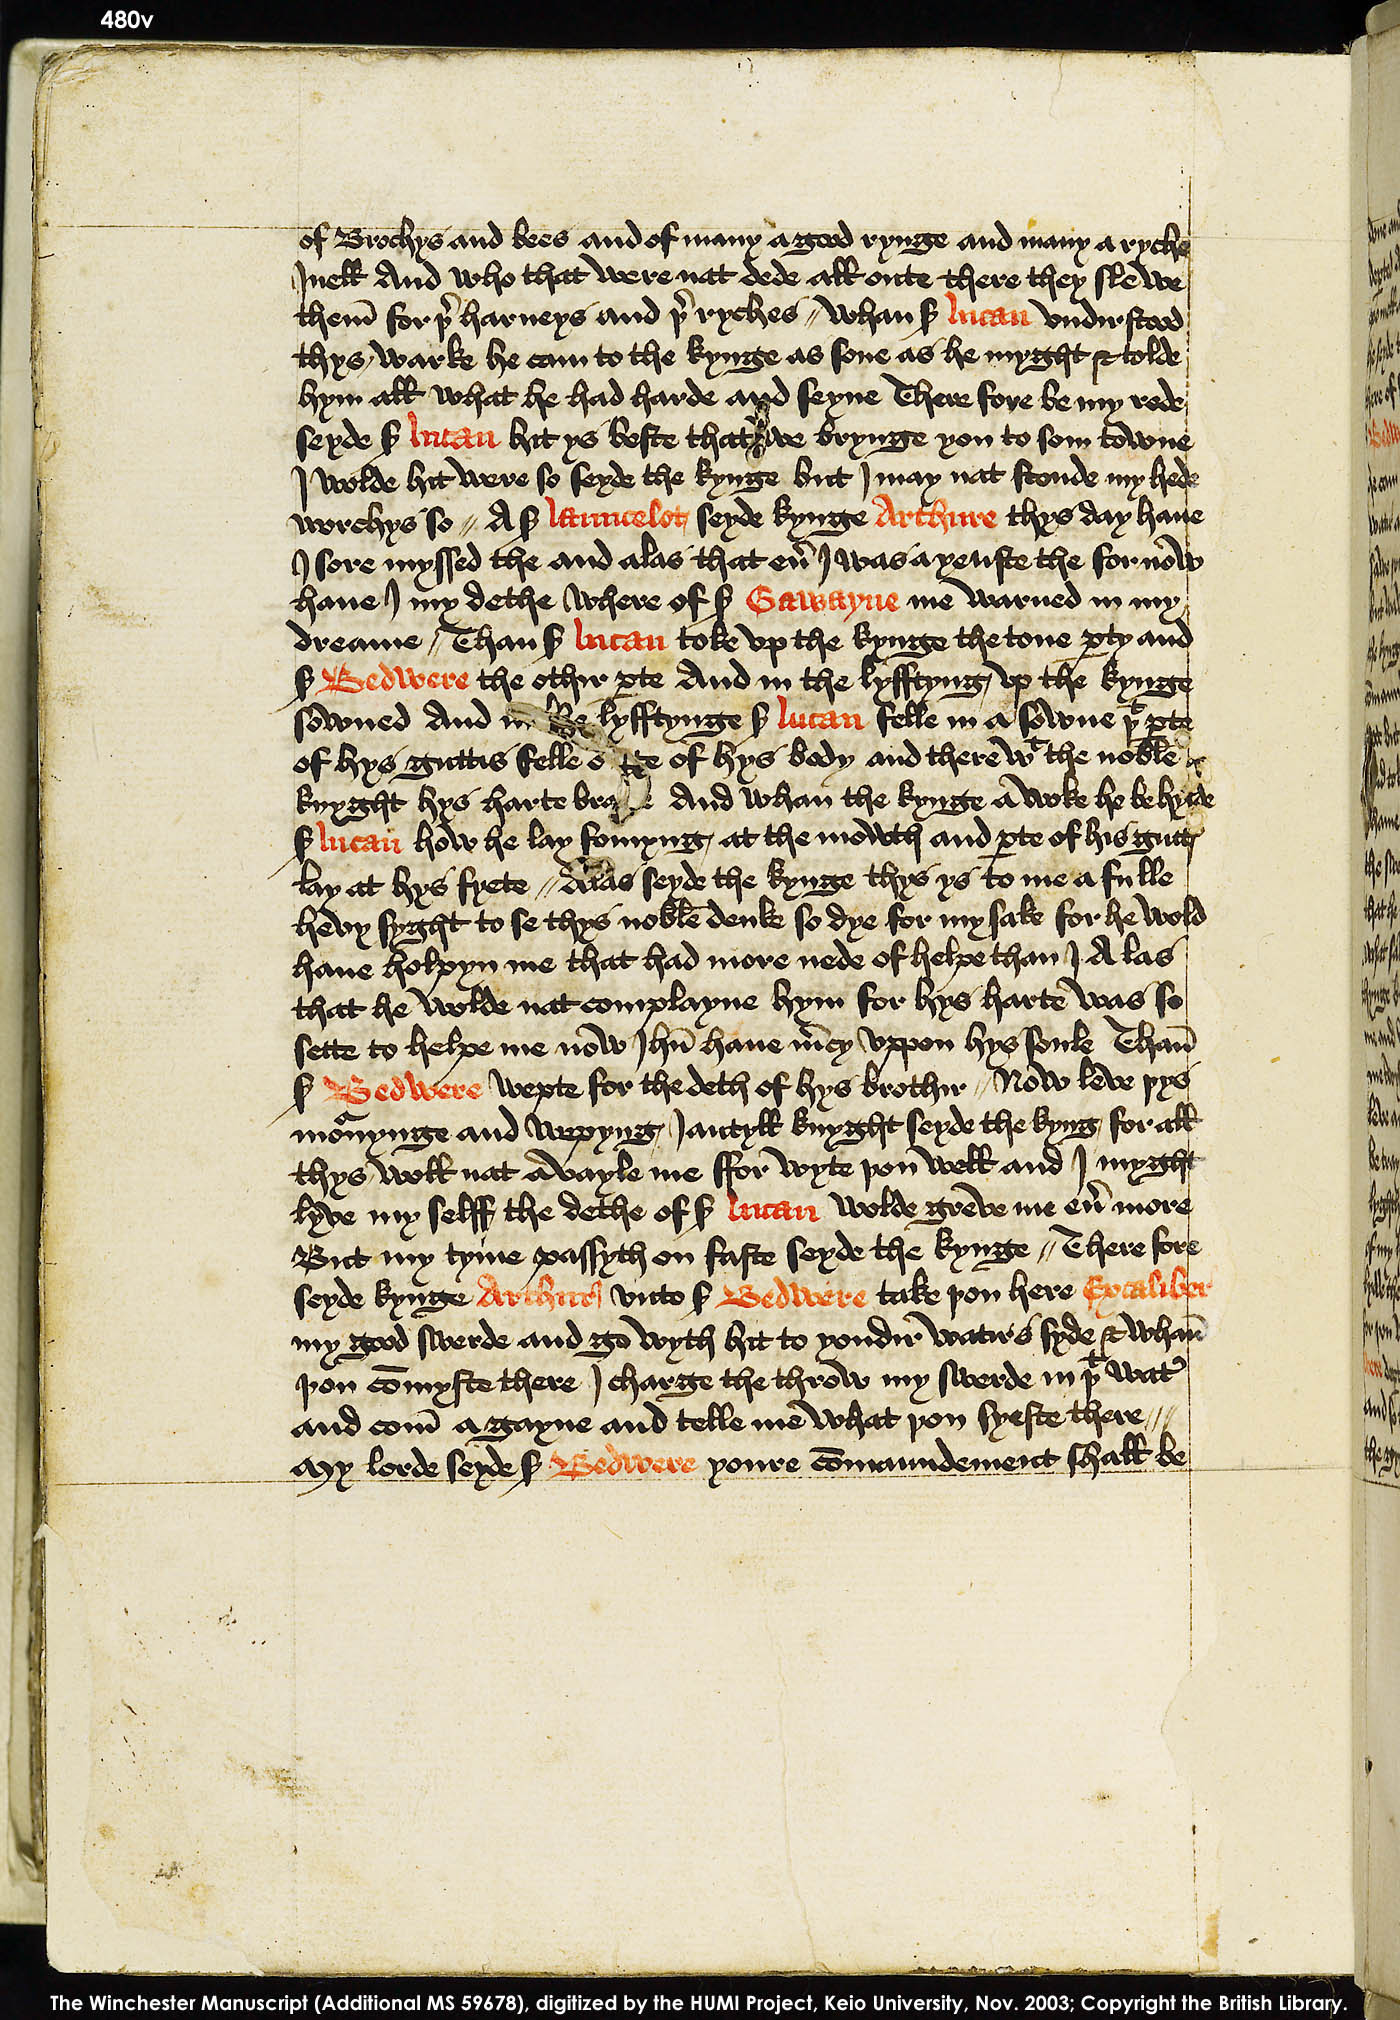 480v
of Brochys and bees and of many a good rynge and many a ryche
Juell And who that were nat dede all oute there they slewe
them̄ for þr harneys and þr ryches // Whan S lucan vndirstood
thys warke he cam to the kynge as sone as he myght & tolde
hym all what he had harde and seyne There fore be my rede
seyde S lucan hit ys beste that we brynge you to som towne
I wolde hit were so seyde the kynge but I may nat stonde my hede
worchys so // A S launcelot seyde kynge Arthure thys day haue
I sore myssed the and alas that eū I was a yenste the for now
haue I my dethe where of S Gawayne me warned in my
dreame // Than S lucan toke vp the kynge the tone ꝑty and
S Bedwere the othir ꝑte And in the lyfftyng vp the kynge
sowned And in the lyfftynge S lucan felle in a sowne þt ꝑte
of hys guttis felle oute of hys body and therewt the noble
knyght hys harte braste And whan the kynge a woke he be hylde
S lucan how he lay fomyng at the mowth and ꝑte of his gutt
lay at hys fyete // Alas seyde the kynge thys ys to me a fulle
hevy syght to se thys noble deuke so dye for my sake for he wold
haue holpyn me that had more nede of helpe than I Alas
that he wolde nat complayne hym for hys harte was so
sette to helpe me now Jhū haue m̄cy vppon hys soule Than̄
S Bedwere wepte for the deth of hys brothir // Now leve þys
moᵃnynge and wepyng Jantyll knyght seyde the kyng for all
thys woll nat avayle me ffor wyte you well and I myght
lyve my selff the dethe of S lucan wolde greve me eū more
But my tyme passyth on faste seyde the kynge // There fore
seyde kynge Arthur vnto S Bedwere take you here Excaliber
my good swerde and go wyth hit to yondir watirs syde & whan̄
you com̄yste there I charge the throw my swerde in þt watr
and com̄ a gayne and telle me what you syeste there ///
My lorde seyde S Bedwere youre com̄aundement shall be
The Winchester Manuscript (Additional MS 59678), digitized by the HUMI Project, Keio University, Nov. 2003; Copyright the British Library.